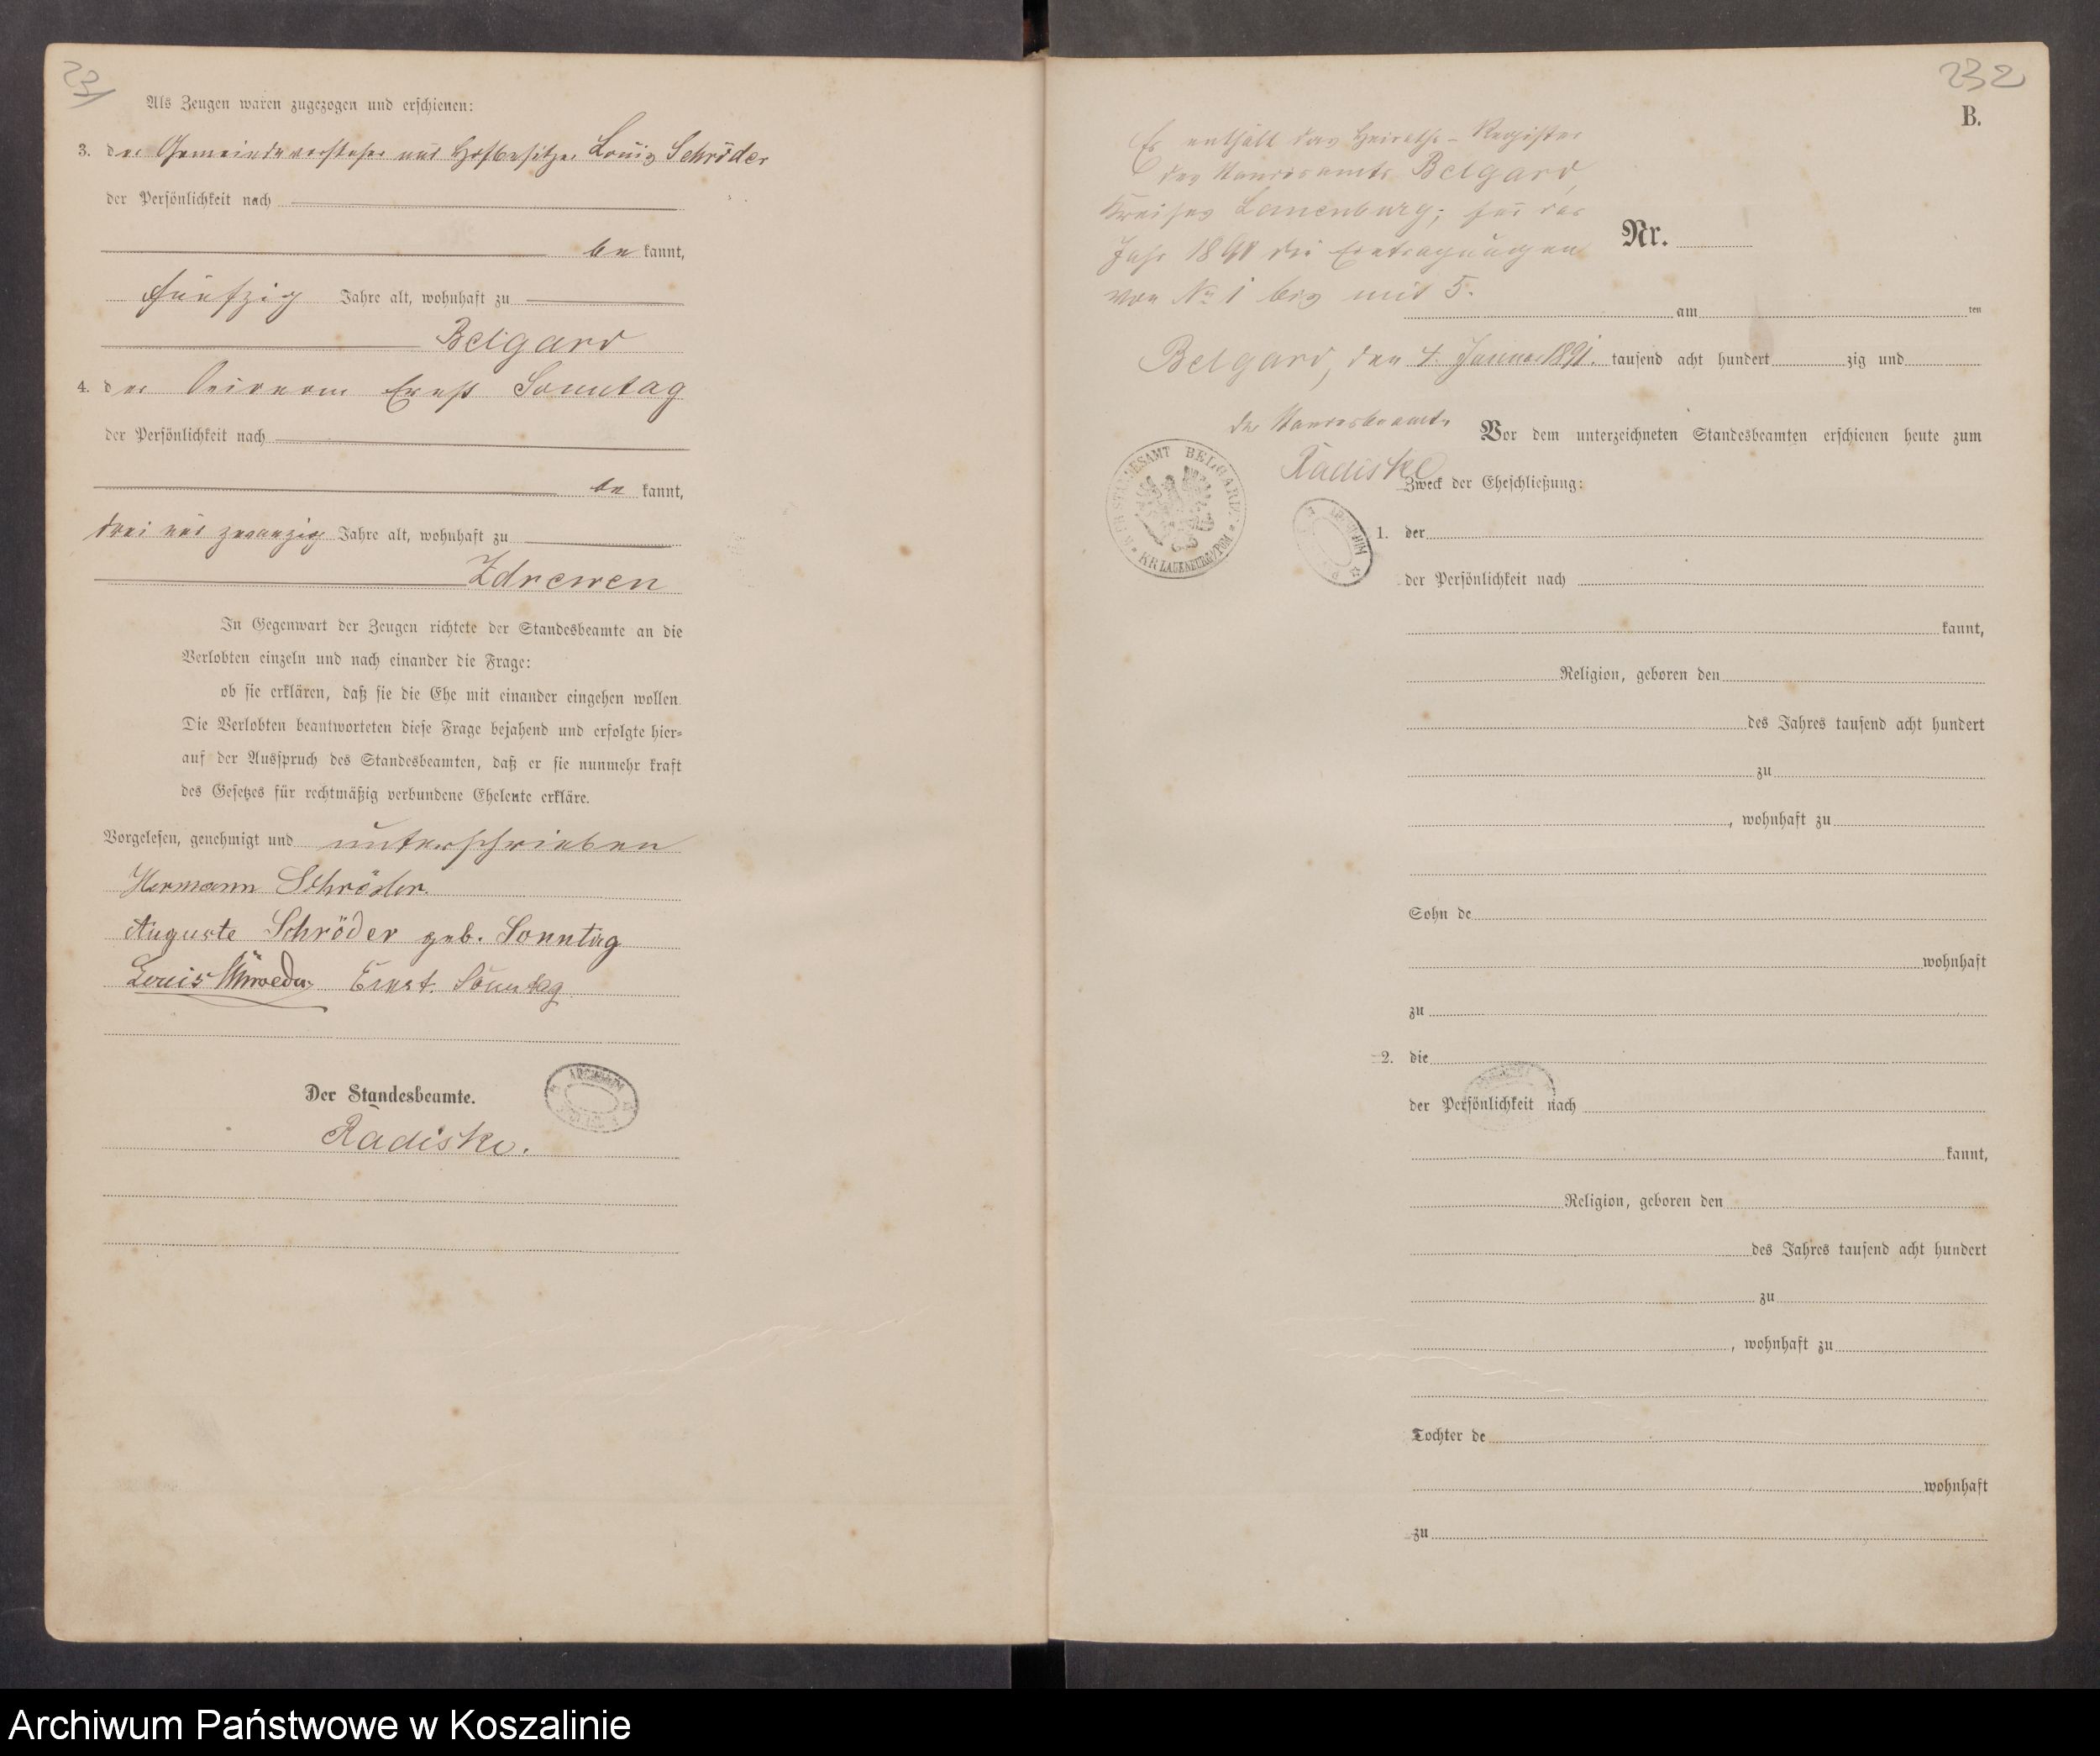 231
Als Zeugen waren zugezogen und erschienen:
3. der Gemeindevorsteher und Hofbesitzer Louis Schröder
der Persönlichkeit nach
be kannt,
fünfzig Jahre alt, wohnhaft zu
Belgard
4. der Ernst Sonntag
der Persönlichkeit nach
be kannt,
drei und zwanzig Jahre alt, wohnhaft zu
Zdrewen
In Gegenwart der Zeugen richtete der Standesbeamte an die
Verlobten einzeln und nach einander die Frage:
ob sie erklären, daß sie die Ehe mit einander eingehen wollen.
Die Verlobten beantworteten diese Frage bejahend und erfolgte hier-
auf der Ausspruch des Standesbeamten, daß er sie nunmehr kraft
des Gesetzes für rechtmäßig verbundene Eheleute erkläre.
Vorgelesen, genehmigt und unterschrieben
Hermann Schröder.
Auguste Schröder geb. Sonntag
Louis Schröder Ernst Sonntag
Der Standesbeamte.
Radiske.
232
B.
Es enthält das Heiraths-Register
des Standesamts Belgard,
Kreises Lauenburg, für das
Jahr 1890 die Eintragungen
von No 1 bis mit 5.
Nr.
am ten
Belgard, den 4. Januar 1891. tausend acht hundert zig und
der Standesbeamte
Radiske
Vor dem unterzeichneten Standesbeamten erschienen heute zum
Zweck der Eheschließung:
STANDESAMT BELGARD
KR LAUENBURG/POM
1. der
der Persönlichkeit nach
kannt,
Religion, geboren den
des Jahres tausend acht hundert
zu
, wohnhaft zu
Sohn de
wohnhaft
zu
2. die
der Persönlichkeit nach
kannt,
Religion, geboren den
des Jahres tausend acht hundert
zu
, wohnhaft zu
Tochter de
wohnhaft
zu
Archiwum Państwowe w Koszalinie